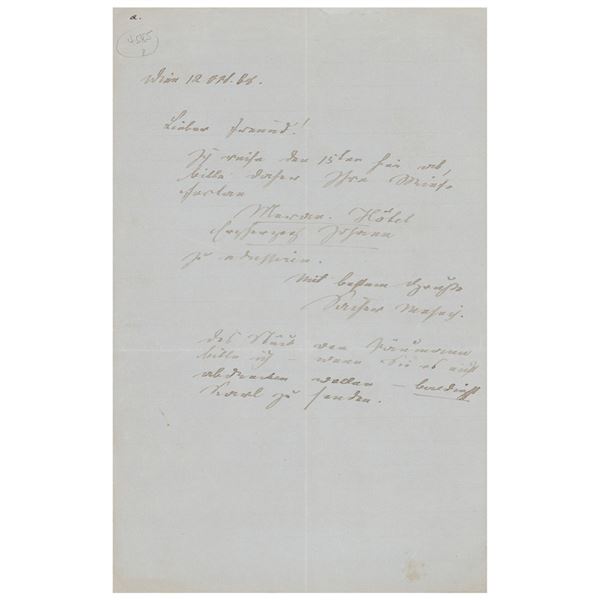 a.
Wien 12 Okt. 88.
Lieber Freund!
Ich reise den 15ten hier ab,
bitte daher Ihre Briefe
fortan
Meran. Hôtel
Erzherzog Johann
zu adressiren.
Mit bestem Gruße
Das Stück von
bitte ich – wenn Sie es nicht
abdrucken wollen – baldigst
zu senden.